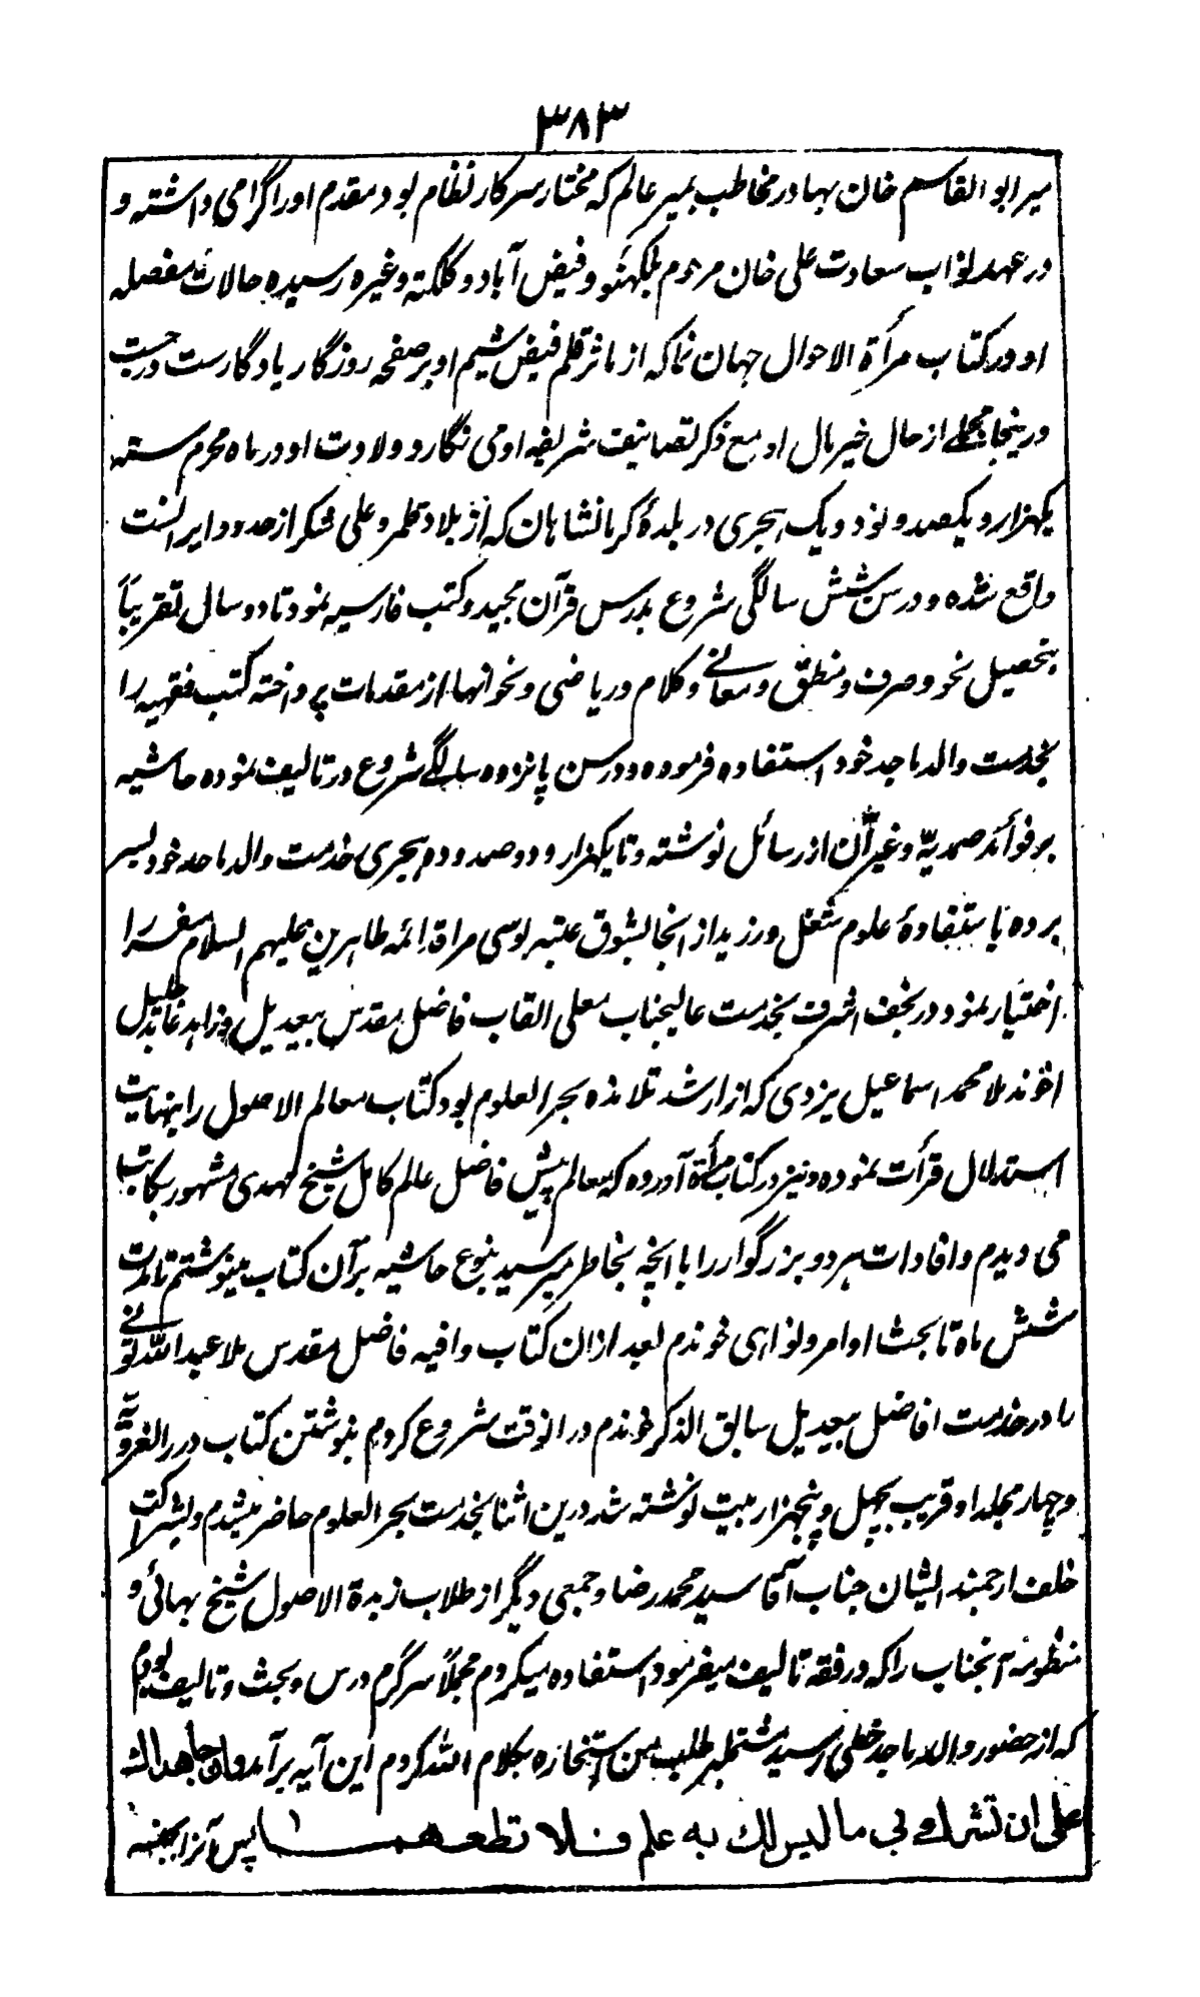 ۳۸۳
میر ابو القاسم خان بهادر مخاطب بمیر عالم که مختار سرکار نظام بود مقدم او را گرامی داشته و
در عهد نواب سعادت علی خان مرحوم بلکهنؤ و فیض آباد و کلکته و غیره رسیده حالات مفصله
او در کتاب مرأة الاحوال جهان نما که از ماثر قلم فیض شیم او بر صفحه روزگار یادگارست درجست
درینجا مجملے از حال خیر مال او مع ذکر تصانیف شریفه او می نگارد ولادت او در ماه محرم سنه
یکهزار و یکصد و نود و یک هجری در بلدهٔ کرمانشاهان که از بلاد قلمرو علی شکر از حدود ایرانست
واقع شده و در سن شش سالگی شروع بدرس قرآن مجید و کتب فارسیه نمود تا دو سال تقریباً
بتحصیل نحو و صرف و منطق و معانے و کلام و ریاضی و نحو انها از مقدمات پرداخته کتب فقهیه را
بخدمت والد ماجد خود استفاده فرموده و در سن پانزده سالگے شروع در تالیف نموده حاشیه
بر فوائد صمدیّه و غیر آن از رسائل نوشته و تا یکهزار و دو صد و ده هجری خدمت والد ماجد خود بسر
برده باستفادهٔ علوم شغل ورزید از انجا بشوق عتبه بوسی مراقد ائمه طاهرین علیهم السلام سفر را
اختیار نمود در نجف اشرف بخدمت عالیجناب معلی القاب فاضل مقدس بیعدیل و زاهد عابد جلیل
اخوند ملا محمد اسماعیل یزدی که از ارشد تلامذه بحر العلوم بود کتاب معالم الاصول را بنهایت
استدلال قرأت نموده و نیز در کتاب مرأة آورده که معالم پیش فاضل عالم کامل شیخ مهدی مشهور بکاتب
می دیدم و افادات هر دو بزرگوار را با انچه بخاطر میرسید بنوع حاشیه بر آن کتاب مینوشتم تا مدت
شش ماه تا بحث اوامر و نواهی خواندم بعد ازان کتاب وافیه فاضل مقدس ملا عبد الله تونے
را در خدمت افاضل بیعدیل سابق الذکر خواندم در انوقت شروع کردم بنوشتن کتاب درر الغرویّه
و چهار مجلد او قریب بچهل و پنجهزار بیت نوشته شد درین اثنا بخدمت بحر العلوم حاضر میشدم و بشراکت
خلف ارجمند ایشان جناب آقا سید محمد رضا و جمعی دیگر از طلاب زبدة الاصول شیخ بهائی و
منظومه آنجناب را که در فقه تالیف میفرمود استفاده میکردم مجملاً سرگرم درس و بحث و تالیف بودم
که از حضور والد ماجد خطی رسید مشتملبر طلب من استخاره بکلام الله کردم این آیه برآمد وان جاهداك
علی ان تشرك بی ما لیس لك به علم فلا تطعهما پس آنرا بجنسه